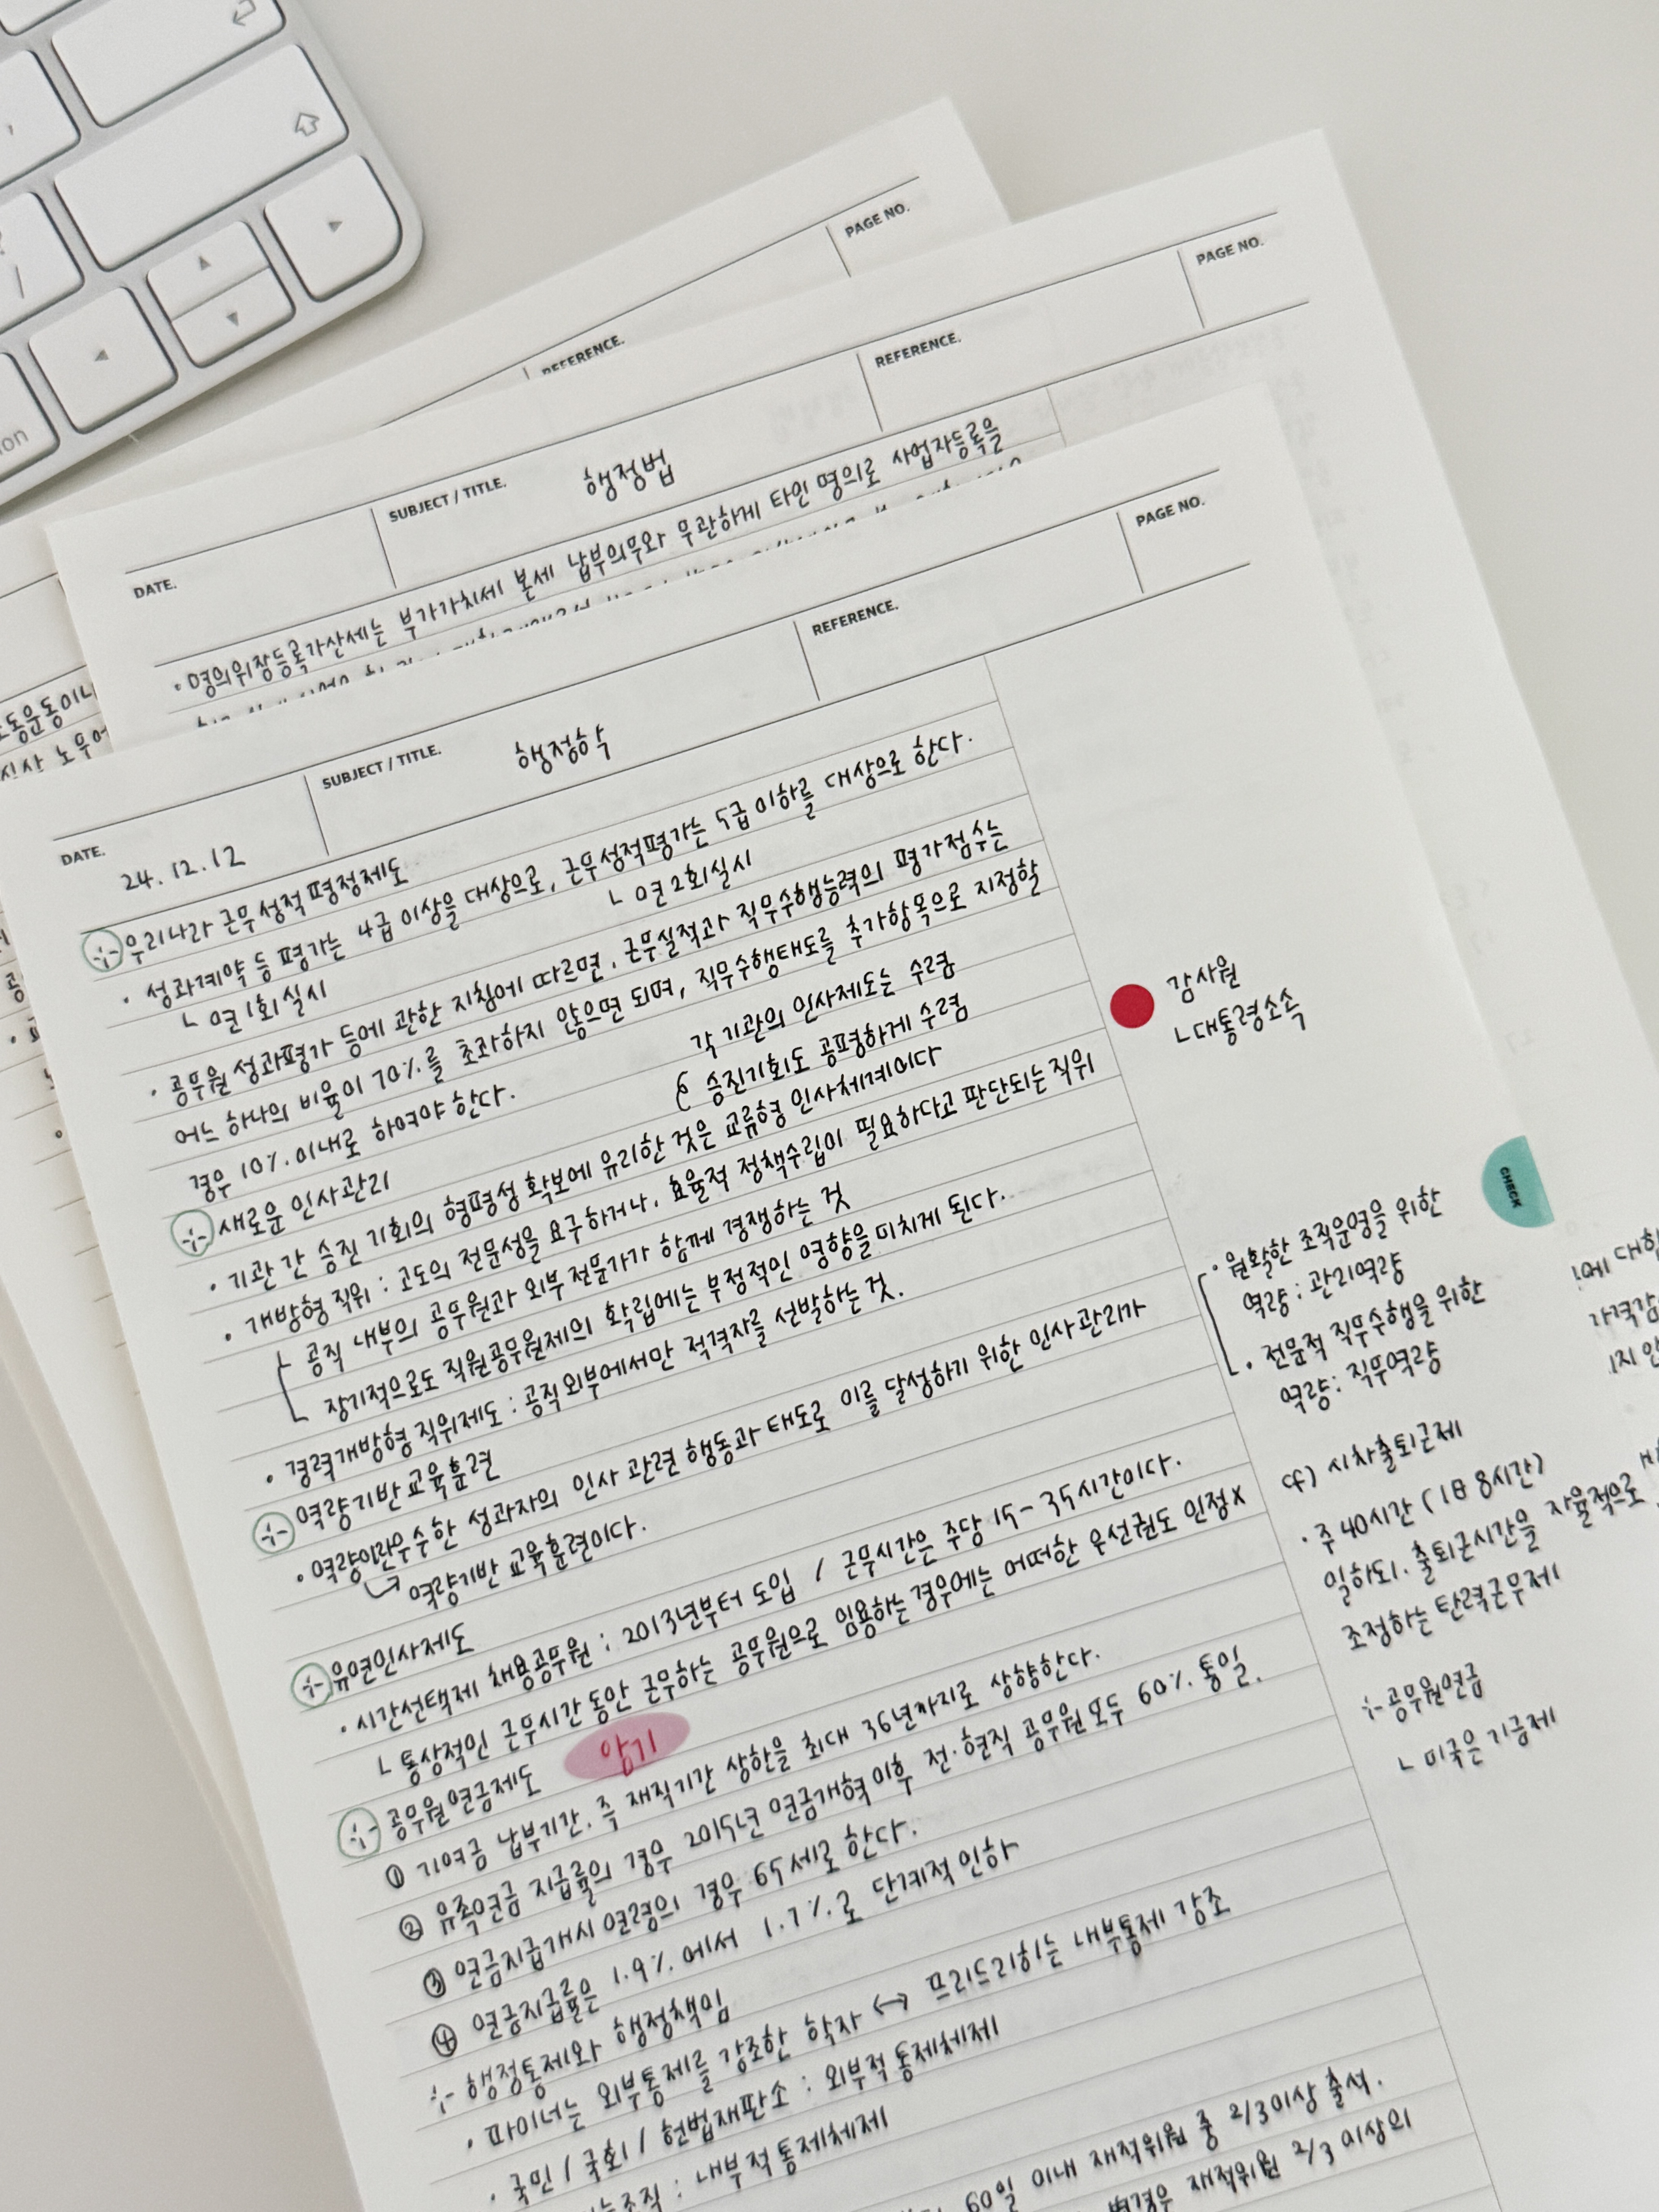 PAGE NO.
REFERENCE.
PAGE NO.
REFERENCE.
SUBJECT / TITLE.
행정법
DATE.
· 명의위장등록가산세는 부가가치세 본세 납부의무와 무관하게 타인 명의로 사업자등록을
PAGE NO.
REFERENCE.
SUBJECT / TITLE.
행정학
DATE.
24.12.12
우리나라 근무성적평정제도
· 성과계약 등 평가는 4급 이상을 대상으로, 근무성적평가는 5급 이하를 대상으로 한다.
ㄴ 연 1회 실시
ㄴ 연 2회 실시
· 공무원 성과평가 등에 관한 지침에 따르면, 근무실적과 직무수행능력의 평가점수는
어느 하나의 비율이 70%를 초과하지 않으면 되며, 직무수행태도를 추가항목으로 지정할
경우 10%이내로 하여야 한다.
각 기관의 인사제도는 수렴
승진기회도 공평하게 수렴
새로운 인사관리
· 기관 간 승진 기회의 형평성 확보에 유리한 것은 교류형 인사체계이다
· 개방형 직위 : 고도의 전문성을 요구하거나, 효율적 정책수립이 필요하다고 판단되는 직위
공직 내부의 공무원과 외부 전문가가 함께 경쟁하는 것
장기적으로도 직원공무원제의 확립에는 부정적인 영향을 미치게 된다.
· 경력개방형 직위제도 : 공직 외부에서만 적격자를 선발하는 것.
역량기반 교육훈련
· 역량이란 우수한 성과자의 인사 관련 행동과 태도로 이를 달성하기 위한 인사관리가
역량기반 교육훈련이다.
유연인사제도
· 시간선택제 채용공무원 : 2013년부터 도입 / 근무시간은 주당 15- 35시간이다.
ㄴ 통상적인 근무시간 동안 근무하는 공무원으로 임용하는 경우에는 어떠한 우선권도 인정X
공무원 연금제도 암기
① 기여금 납부기간, 즉 재직기간 상한을 최대 36년까지로 상향한다.
② 유족연금 지급률의 경우 2015년 연금개혁 이후 전·현직 공무원 모두 60% 통일.
③ 연금지급개시 연령의 경우 65세로 한다.
④ 연금지급률은 1.9%에서 1.7%로 단계적 인하
행정통제와 행정책임
· 파이너는 외부통제를 강조한 학자 ↔ 프리드리히는 내부통제 강조
· 국민 / 국회 / 헌법재판소 : 외부적 통제체제
조직 : 내부적 통제체제
60일 이내 재적위원 중 2/3이상 출석,
재적위원 2/3 이상의
감사원
ㄴ대통령소속
CHECK
· 원활한 조직운영을 위한
역량 : 관리역량
· 전문적 직무수행을 위한
역량 : 직무역량
cf) 시차출퇴근제
· 주 40시간 (1日 8시간)
일하되, 출퇴근시간을 자율적으로
조정하는 탄력근무제
공무원연금
ㄴ 미국은 기금제